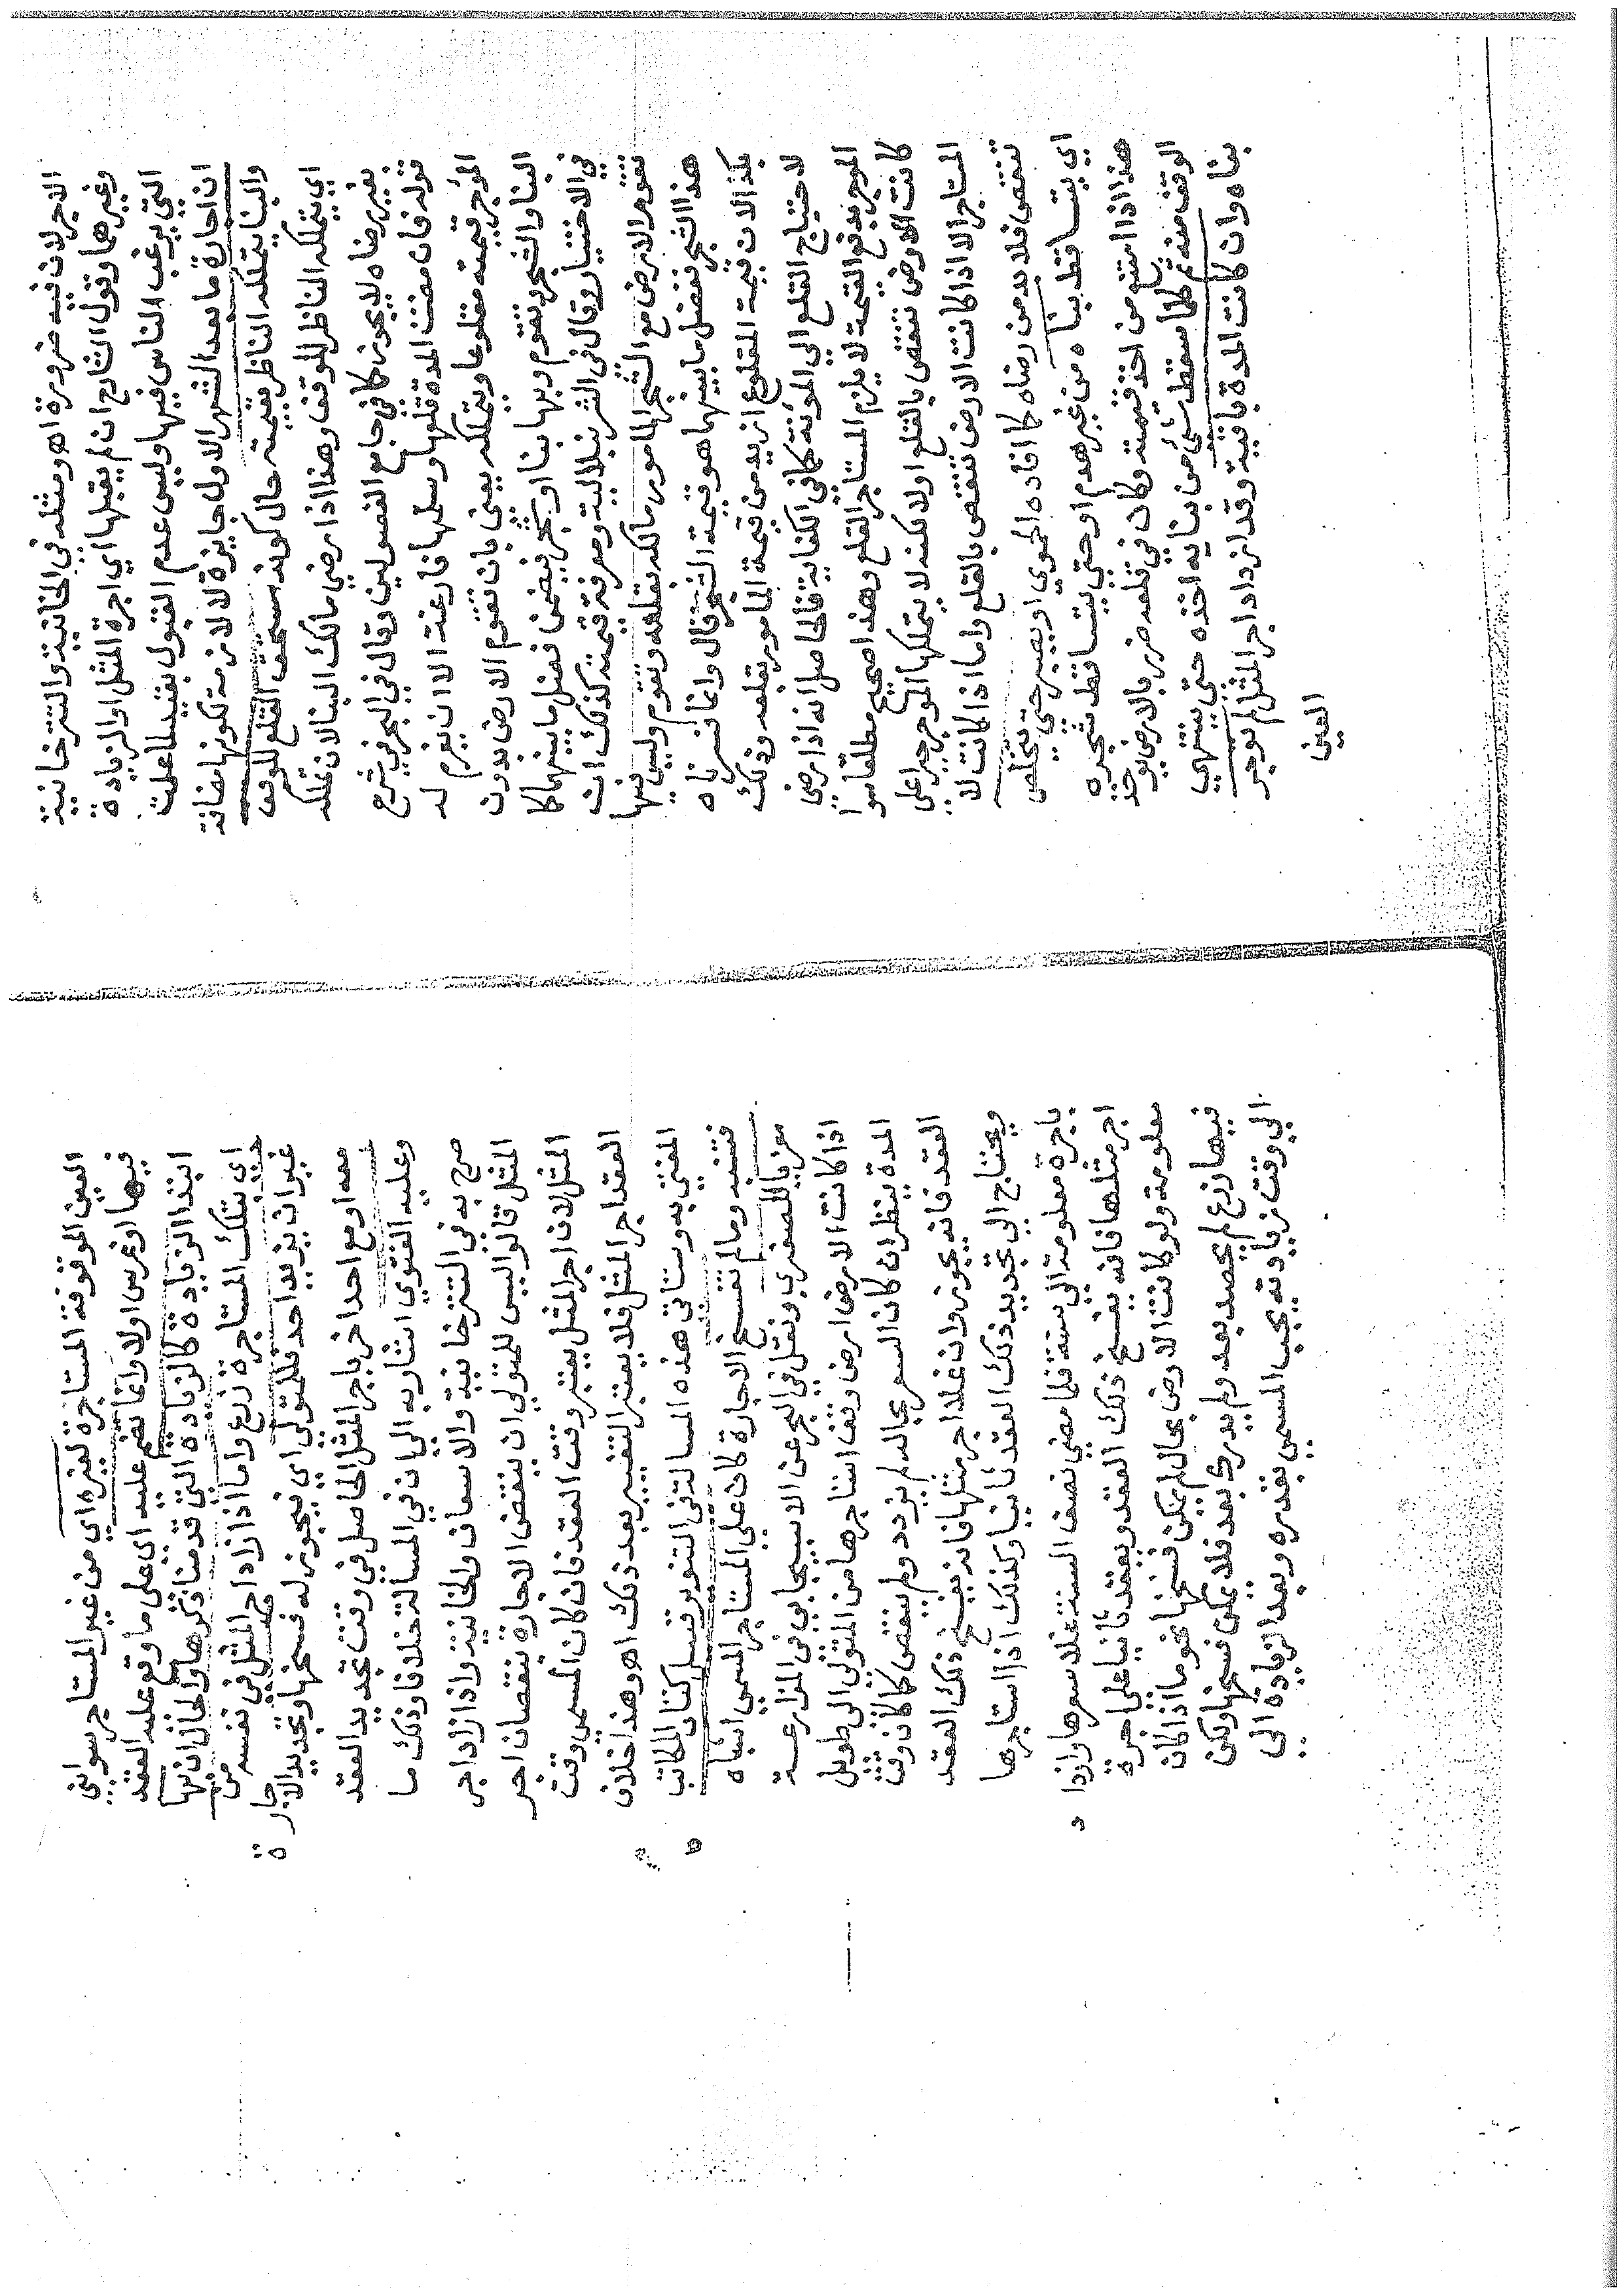 الاجر لان فيه ضرورة اهو مثله في الخانية والتترخانية
وغيرهما وقول الشارح ان لم يقبلها اي اجرة المثل او الزيادة
التي يرغب الناس فيها وليس عدم القبول بقيد لما علمت
ان اجارة ما بعد الشهر الاول جايزة لا لازمة لكونها مضافة
والبنا يتملكه الناظر بقيمته حال كونه مستحق القلع للوقف
اي يتملكه الناظر للوقف وهذا اذا رضي مالك البنا لان تملكه
بغير رضاه لا يجوز كما في جامع الفصولين وقال في البحر في شرح
قوله فان مضت المدة قلعها وسلمها فارغة الا ان يغرم له
الموجر قيمته مقلوعا ويتملكه يعني بان تقوم الارض بدون
البنا والشجر وتقوم وبها بنا او شجر فيضمن فضل ما بينهما كما
في الاختيار وقال في الشرنبلالية ومعرفة قيمته كذلك ان
تقوم الارض مع الشجر المامور مالكه بقلعه وتقوم وليس فيها
هذا الشجر ففضل ما بينهما هو قيمة الشجر قال وانما فسرناه
بكذا لان قيمة المقلوع ازيد من قيمة المامور بقلعه وذلك
لاحتياج القلع الى المؤنة كما في الكفاية فالحاصل انه اذا رضي
الموجر بدفع القيمة لا يلزم المستاجر القلع وهذا صحيح مطلقا سوا
كانت الارض تنقص بالقلع او لا لكنه لا يتملكها الموجر جبرا على
المستاجر الا اذا كانت الارض تنقص بالقلع واما اذا كانت لا
تنقص فلا بد من رضاه كما افاده الحموي او يصبر حتى يتخلص
اي يتساقط بناه من غير هدم او حتى يتساقط شجره
هذا اذا امتنع من اخذ قيمته وكان في قلعه ضرر بالارض يوخذ
الوقف منه ثم كلما سقط شي من بنايه اخذه حتى ينتهي
بناه وان كانت المدة باقية وقد ازداد اجر المثل لم توجر
العين
العين الموقوفة المستاجرة لغيره اي من غير المستاجر سوا بنى
فيها او غرس او لا وانما تضم عليه اي على ما وقع عليه العقد
ابتدا الزيادة كالزيادة التي قدمنا ذكرها والحال انها
اي بتلك المستاجرة زرع واما اذا زاد اجر المثل في نفسه من
غير ان يزيد احد فللمتولي اي فيجوز له فسخها وتجديد الاجارة
معه او مع احد اخر باجر المثل الحاصل في وقت تجديد العقد
وعليه الفتوي اشار به الى ان في المسالة خلافا وذلك ما
صرح به في التترخانية والاسعاف والخانية واذا زاد اجر
المثل قالوا ليس للمتولي ان ينقض الاجارة بنقصان اجر
المثل لان اجر المثل يعتبر وقت العقد فان كان المسمى وقت
العقد اجر المثل فلا يعتبر التغيير بعد ذلك اهو وهذا خلاف
المفتي به وستاتي هذه المسالة في التنوير قبيل كتاب المكاتب
فتنبه وما لم تفسخ الاجارة كان على المستاجر المسمى اشباه
معزيا للصغرى ونقل في البحر عن الاسبيجابي في المزارعة
اذا كانت الارض ارض وقف استاجرها من المتولي الى طويل
المدة ينظر ان كان السعر بحاله لم يزدد ولم ينقص كما كان وقت
العقد فانه يجوز وان غلا اجر مثلها فانه يفسخ ذلك العقد
ويحتاج الى تجديد ذلك العقد ثانيا وكذلك اذا استاجرها
باجرة معلومة الى سنة فلما مضى نصف السنة غلا سعرها وازداد
اجر مثلها فانه يفسخ ذلك العقد ويعقد ثانيا على اجرة
معلومة ولو كانت الارض بحال لم يمكن فسخها نحو ما اذا كان
فيها زرع لم يحصد بعد ولم يدرك بعد فلا يمكن فسخها ولكن
الى وقت زيادته يجب المسمى بقدره وبعد الزيادة الى